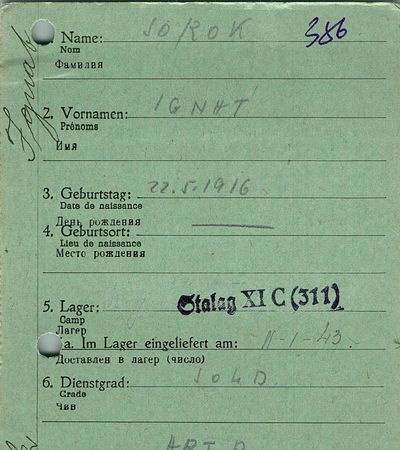 Name: SOROK 386
Nom
Фамилия
2. Vornamen: IGNAT
Prénoms
Имя
3. Geburtstag: 22.5.1916
Date de naissance
День рождения
4. Geburtsort:
Lieu de naissance
Место рождения
5. Lager: Stalag XI C (311)
Camp
Лагер
a. Im Lager eingeliefert am: 11-1-43
Доставлен в лагер (число)
6. Dienstgrad: SOLD.
Grade
Чин